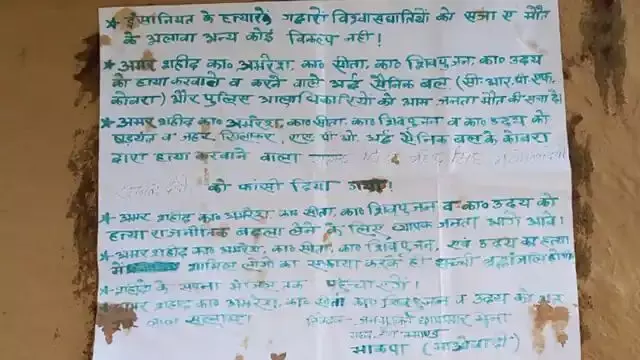 ★ इंसानियत के हत्यारों गद्दारों विश्वासघातियों को सजा ए मौत
के अलावा अन्य कोई विकल्प नहीं!
★ अमर शहीद का० अमरेश, का० सीता, का० शिवपूजन, का० उदय
को हत्या करवाने व करने वाले अर्द्ध सैनिक बल (सी.आर.पी.एफ.
कोबरा) और पुलिस आलाधिकारियों को आम जनता मौत की सजा दें।
★ अमर शहीद का० अमरेश, का० सीता, का० शिवपूजन व का० उदय को
षड्यंत्र व जहर खिलाकर, एस० पी० ओ० अर्द्ध सैनिक बल के कोबरा
द्वारा हत्या करवाने वाला
को फांसी दिया गया!
★ अमर शहीद का० अमरेश, का० सीता, का० शिवपूजन व का० उदय की
हत्या राजनीतिक बदला लेने के लिए व्यापक जनता आगे आवें।
★ अमर शहीद का० अमरेश, का० सीता, का० शिवपूजन, एवं उदय का हत्या
में शामिल लोगों का सफाया करके ही सच्ची श्रद्धांजलि होगा
★ शहीदों के सपनों
★ अमर शहीद का० अमरेश, का० सीता का० शिवपूजन व उदय को
लाल सलाम
निवेदक -
भाकपा (माओवादी)